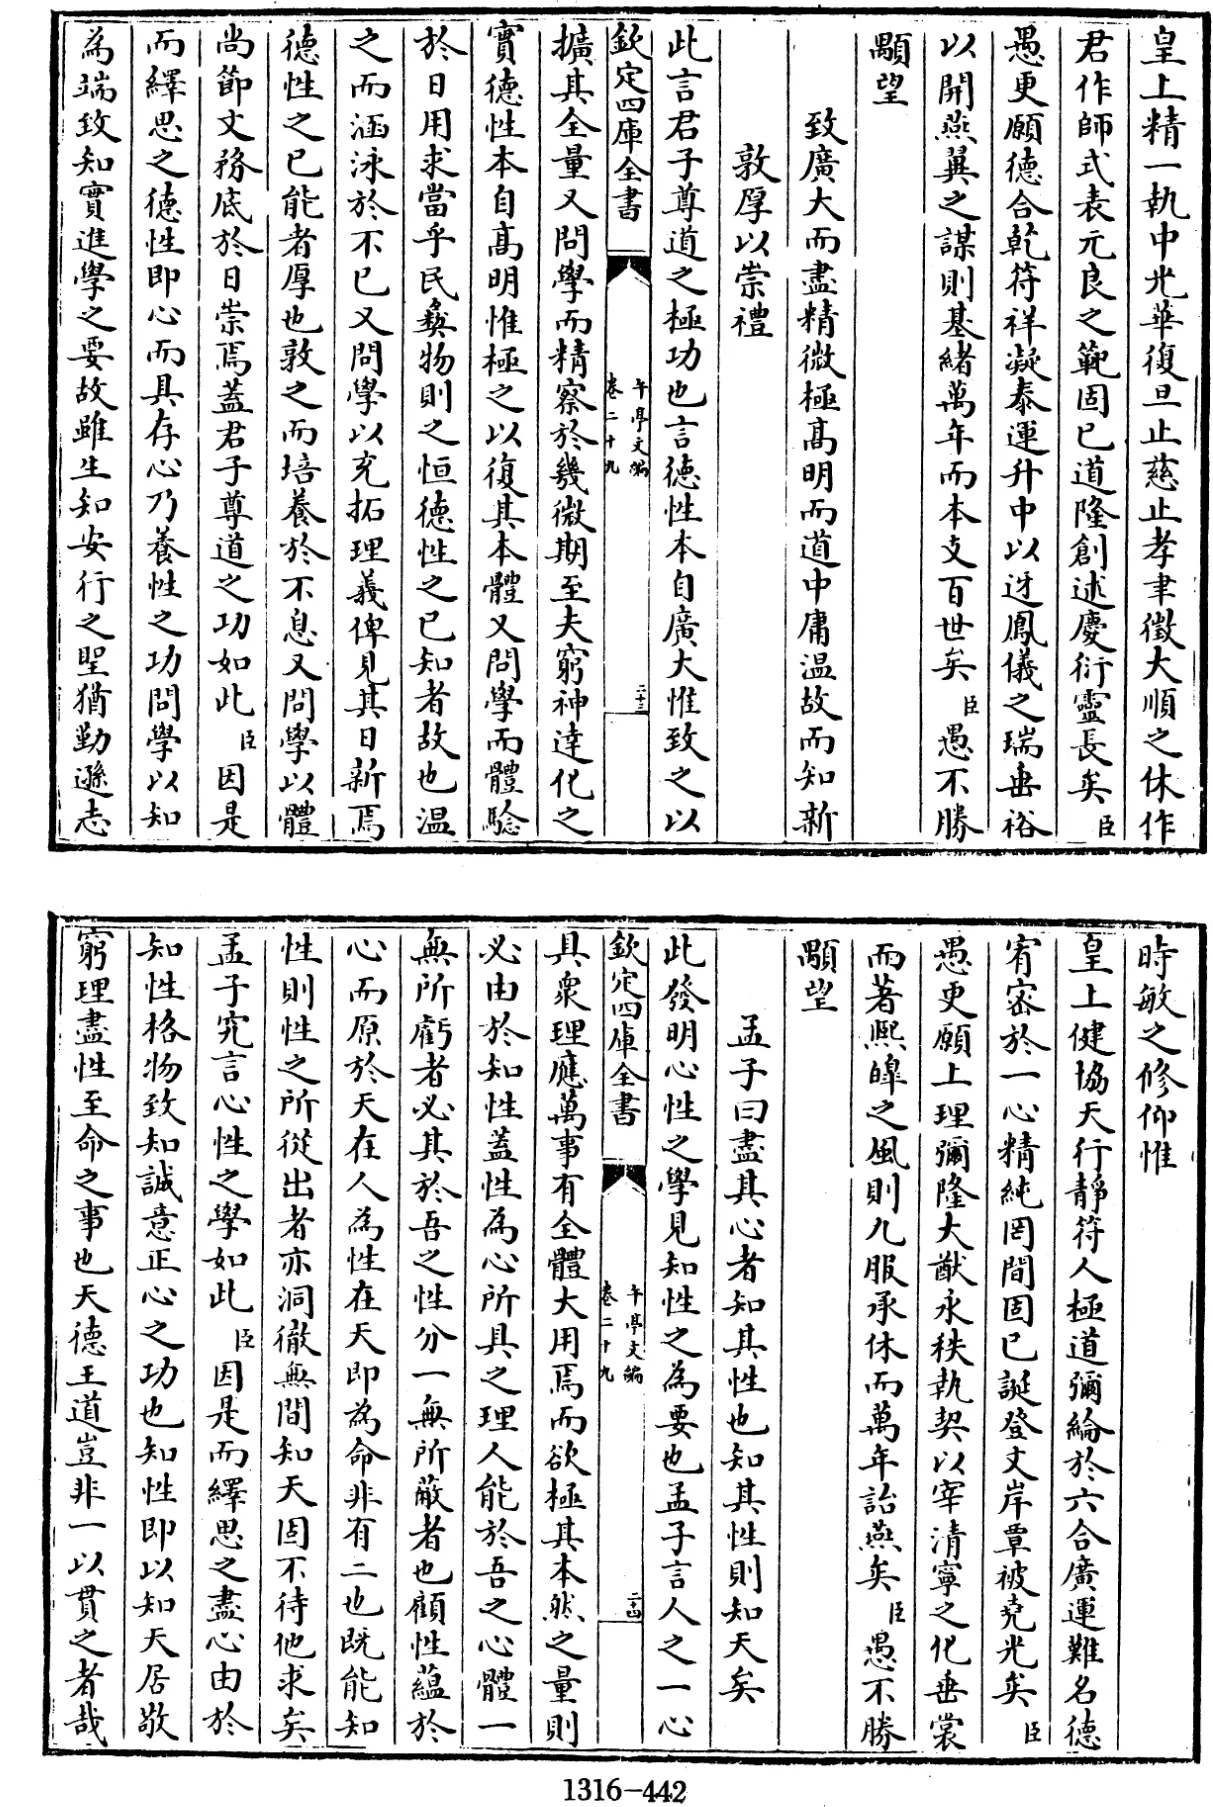 皇上精一執中光華復旦止慈止孝聿徵大順之休作
君作師式表元良之範固已道隆創述慶衍靈長矣臣
愚更願德合乾符祥凝泰運升中以迓鳳儀之瑞垂裕
以開燕翼之謀則基緒萬年而本支百世矣臣愚不勝
顒望
致廣大而盡精微極髙明而道中庸温故而知新
敦厚以崇禮
此言君子尊道之極功也言德性本自廣大惟致之以
欽定四庫全書
午亭文編
卷二十九
二十三
擴其全量又問學而精察於幾微期至夫窮神達化之
實德性本自髙明惟極之以復其本體又問學而體驗
於日用求當乎民彝物則之恒德性之已知者故也温
之而涵泳於不已又問學以充拓理義俾見其日新焉
德性之已能者厚也敦之而培養於不息又問學以體
尚節文務底於日崇焉蓋君子尊道之功如此臣因是
而繹思之德性即心而具存心乃養性之功問學以知
為端致知實進學之要故雖生知安行之聖猶勤遜志
時敏之修仰惟
皇上健協天行靜符人極道彌綸於六合廣運難名德
宥宻於一心精純罔間固已誕登文岸覃被堯光矣臣
愚更願上理彌隆大猷永秩執契以宰清寧之化垂裳
而著熙皡之風則九服承休而萬年詒燕矣臣愚不勝
顒望
孟子曰盡其心者知其性也知其性則知天矣
此發明心性之學見知性之為要也孟子言人之一心
欽定四庫全書
午亭文編
卷二十九
二十四
具衆理應萬事有全體大用焉而欲極其本然之量則
必由於知性蓋性為心所具之理人能於吾之心體一
無所虧者必其於吾之性分一無所蔽者也顧性蘊於
心而原於天在人為性在天即為命非有二也既能知
性則性之所從出者亦洞徹無間知天固不待他求矣
孟子究言心性之學如此臣因是而繹思之盡心由於
知性格物致知誠意正心之功也知性即以知天居敬
窮理盡性至命之事也天德王道豈非一以貫之者哉
1316-442